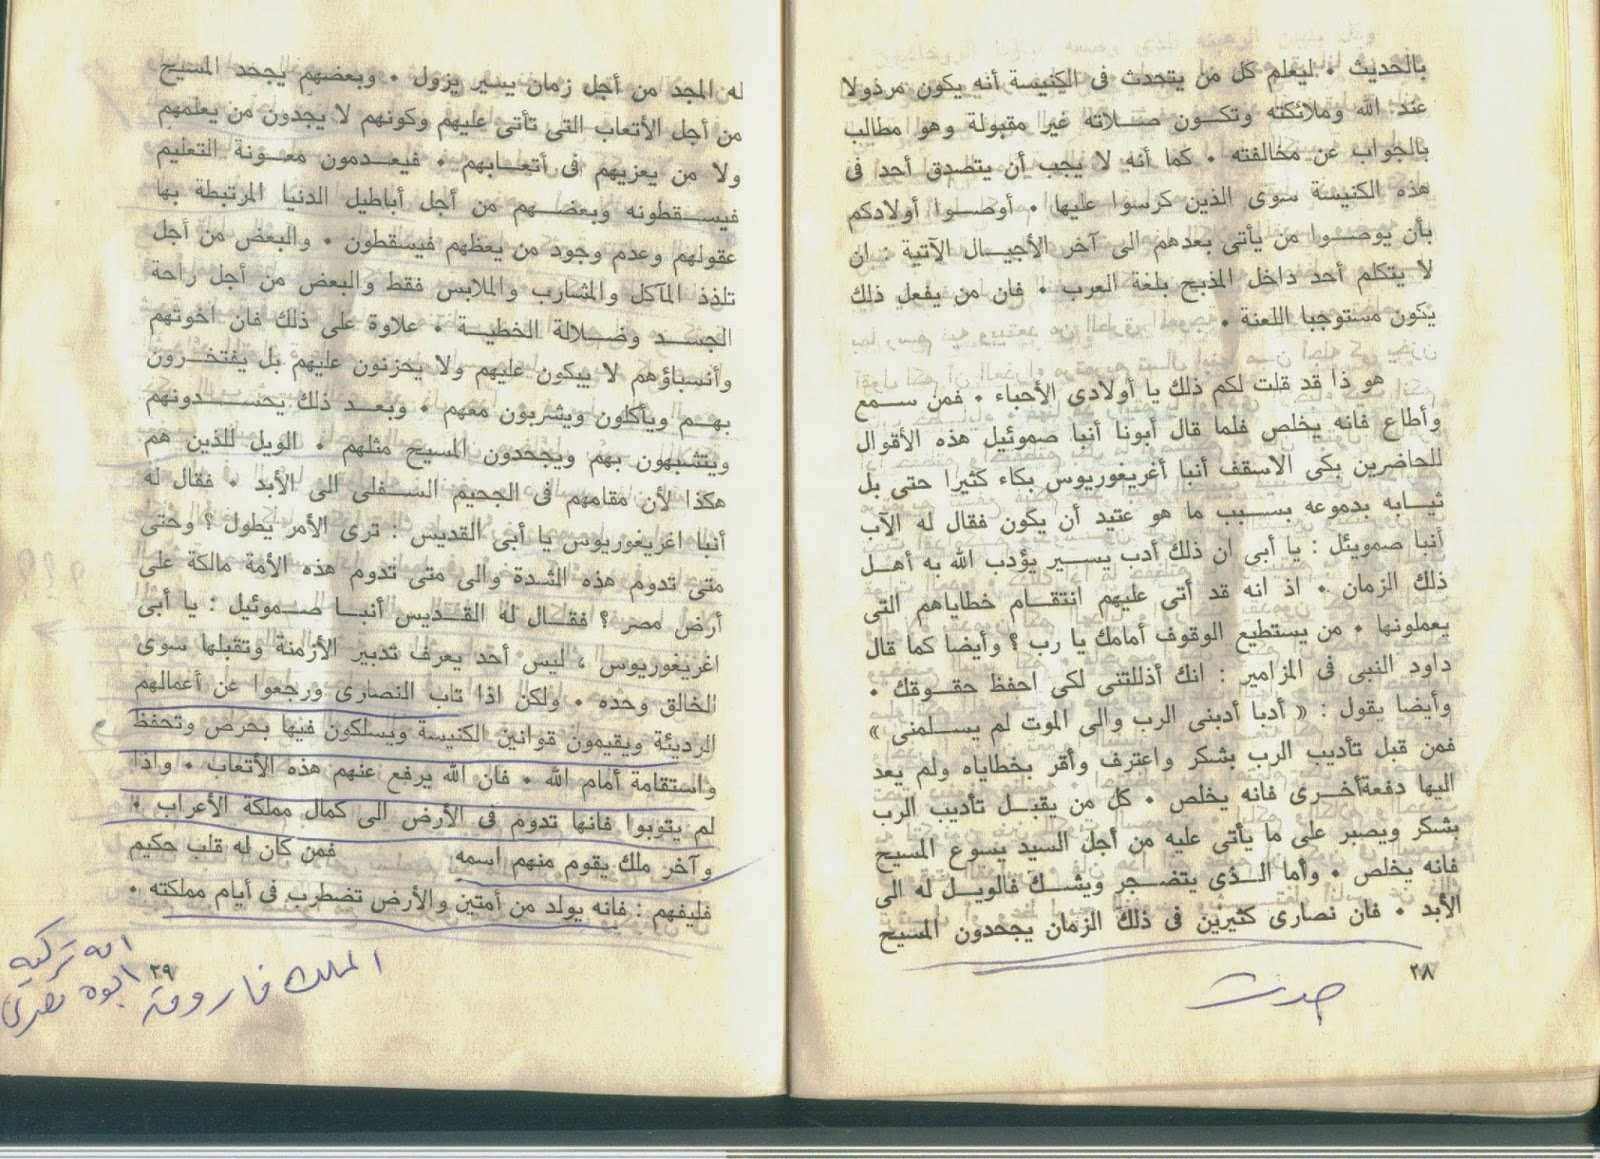 بالحديث . ليعلم كل من يتحدث فى الكنيسة أنه يكون مرذولا
عند الله وملائكته وتكون صلاته غير مقبولة وهو مطالب
بالجواب عن مخالفته . كما أنه لا يجب أن يتصدق أحد فى
هذه الكنيسة سوى الذين كرسوا عليها . أوصوا أولادكم
بأن يوصوا من يأتى بعدهم الى آخر الأجيال الآتية : ان
لا يتكلم أحد داخل المذبح بلغة العرب . فان من يفعل ذلك
يكون مستوجبا اللعنة .
هو ذا قد قلت لكم ذلك يا أولادى الأحباء . فمن سمع
وأطاع فانه يخلص فلما قال أبونا أنبا صموئيل هذه الأقوال
للحاضرين بكى الاسقف أنبا أغريغوريوس بكاء كثيرا حتى بل
ثيابه بدموعه بسبب ما هو عتيد أن يكون فقال له الآب
أنبا صمويئل : يا أبى ان ذلك أدب يسير يؤدب الله به أهل
ذلك الزمان . اذ انه قد أتى عليهم انتقام خطاياهم التى
يعملونها . من يستطيع الوقوف أمامك يا رب ؟ وأيضا كما قال
داود النبى فى المزامير : انك أذللتنى لكى احفظ حقوقك .
وأيضا يقول : « أدبا أدبنى الرب والى الموت لم يسلمنى »
فمن قبل تأديب الرب بشكر واعترف وأقر بخطاياه ولم يعد
اليها دفعة أخرى فانه يخلص . كل من يقبل تأديب الرب
بشكر ويصبر على ما يأتى عليه من أجل السيد يسوع المسيح
فانه يخلص . وأما الذى يتضجر ويشك فالويل له الى
الأبد . فان نصارى كثيرين فى ذلك الزمان يجحدون المسيح
٢٨
حدث
له المجد من أجل زمان يسير يزول . وبعضهم يجحد المسيح
من أجل الأتعاب التى تأتى عليهم وكونهم لا يجدون من يعلمهم
ولا من يعزيهم فى أتعابهم . فيعدمون معونة التعليم
فيسقطونه وبعضهم من أجل أباطيل الدنيا المرتبطة بها
عقولهم وعدم وجود من يعظهم فيسقطون . والبعض من أجل
تلذذ المآكل والمشارب والملابس فقط والبعض من أجل راحة
الجسد وضلالة الخطية . علاوة على ذلك فان اخوتهم
وأنسباؤهم لا يبكون عليهم ولا يحزنون عليهم بل يفتخرون
بهم ويأكلون ويشربون معهم . وبعد ذلك يحسدونهم
ويتشبهون بهم ويجحدون المسيح مثلهم . الويل للذين هم
هكذا لأن مقامهم فى الجحيم السفلى الى الأبد . فقال له
أنبا اغريغوريوس يا أبى القديس : ترى الأمر يطول ؟ وحتى
متى تدوم هذه الشدة والى متى تدوم هذه الأمة مالكة على
أرض مصر ؟ فقال له القديس أنبا صموئيل : يا أبى
اغريغوريوس ، ليس أحد يعرف تدبير الأزمنة وتقبلها سوى
الخالق وحده . ولكن اذا تاب النصارى ورجعوا عن أعمالهم
الرديئة ويقيمون قوانين الكنيسة ويسلكون فيها بحرص وتحفظ
واستقامة أمام الله . فان الله يرفع عنهم هذه الأتعاب . واذا
لم يتوبوا فانها تدوم فى الأرض الى كمال مملكة الأعراب .
وآخر ملك يقوم منهم اسمه فمن كان له قلب حكيم
فليفهم : فانه يولد من أمتين والأرض تضطرب فى أيام مملكته .
٢٩
الملك فاروق
امه تركيه
ابوه مصرى